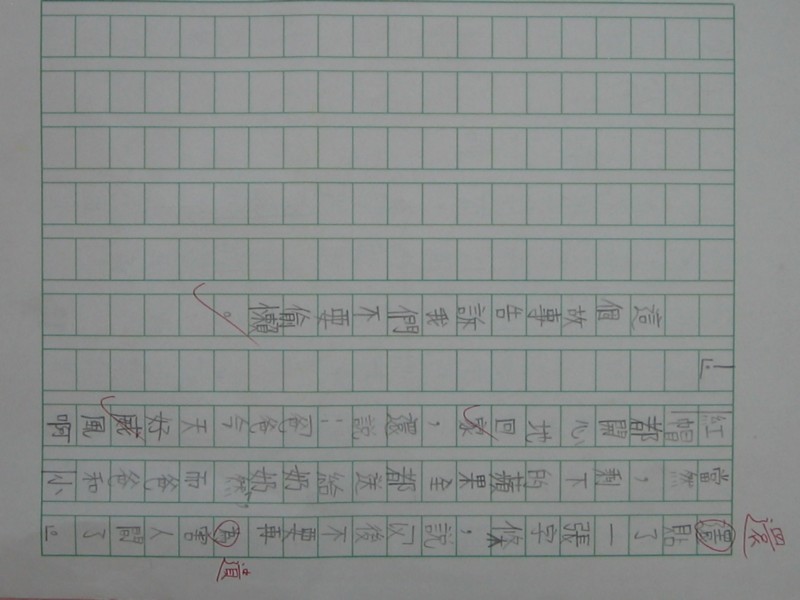 還貼了一張字條，說以後不要再害人間了。」
還
道
當然，剩下的蘋果全都送給奶奶，然而爸爸和小
紅帽都開心地回家，還說：「爸爸今天好威風啊
！」
這個故事告訴我們不要偷懶。